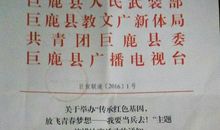 巨鹿县人民武装部
巨鹿县教文广新体局
共青团巨鹿县委
巨鹿县广播电视台
〔2016〕1号
关于举办“传承红色基因,
放飞青春梦想——我要当兵去！”主题